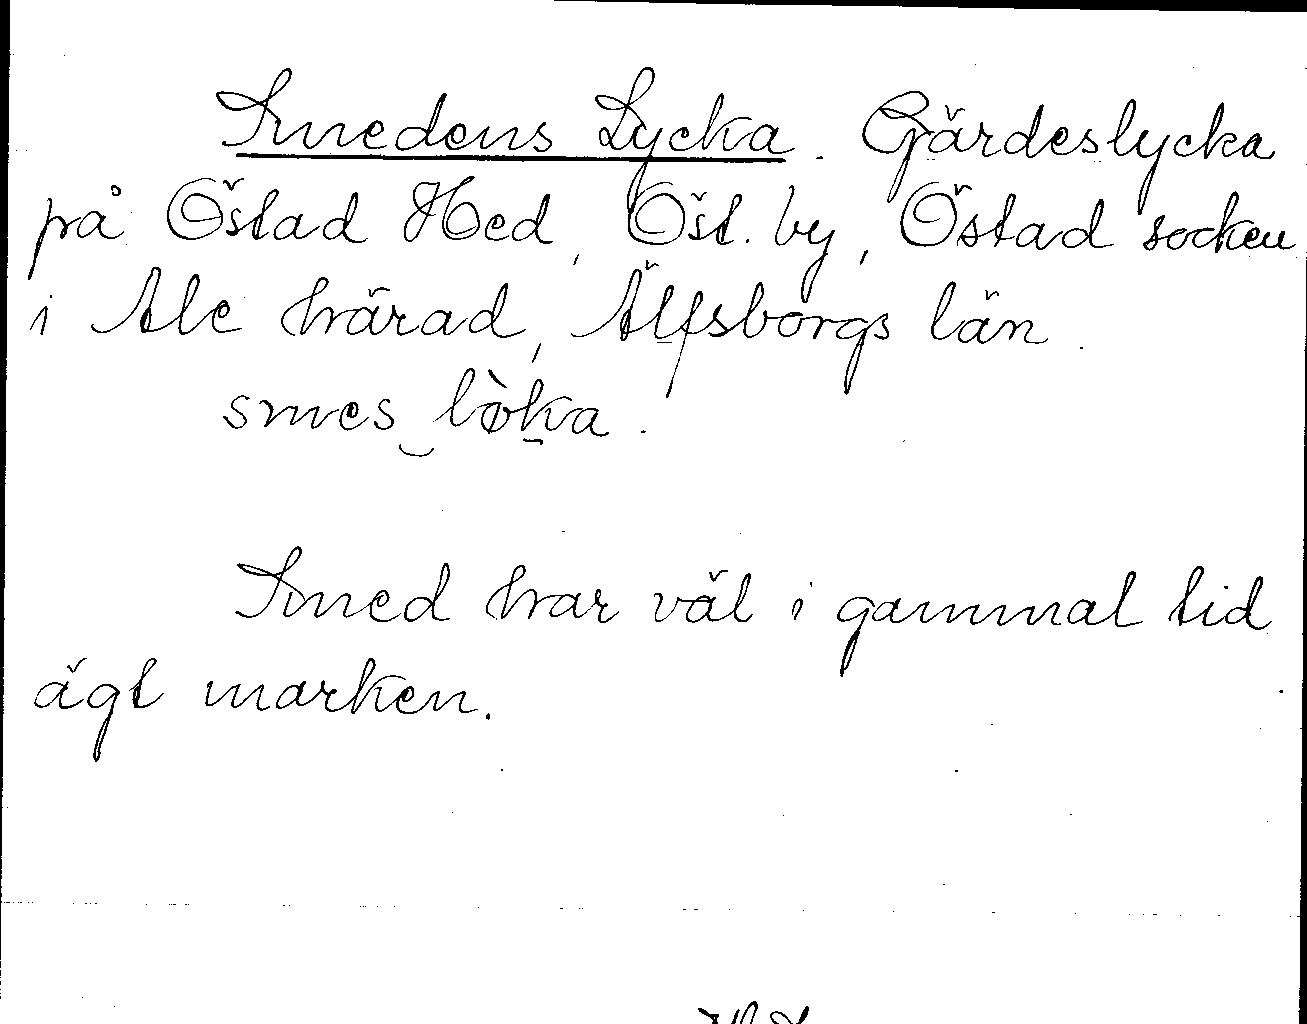 Smedens Lycka. Gärdeslycka
på Östad Hed, Öst. by, Östad socken
i Ale härad, Älfsborgs län.
smes lø̀ka.
Smed har väl i gammal tid
ägt marken.